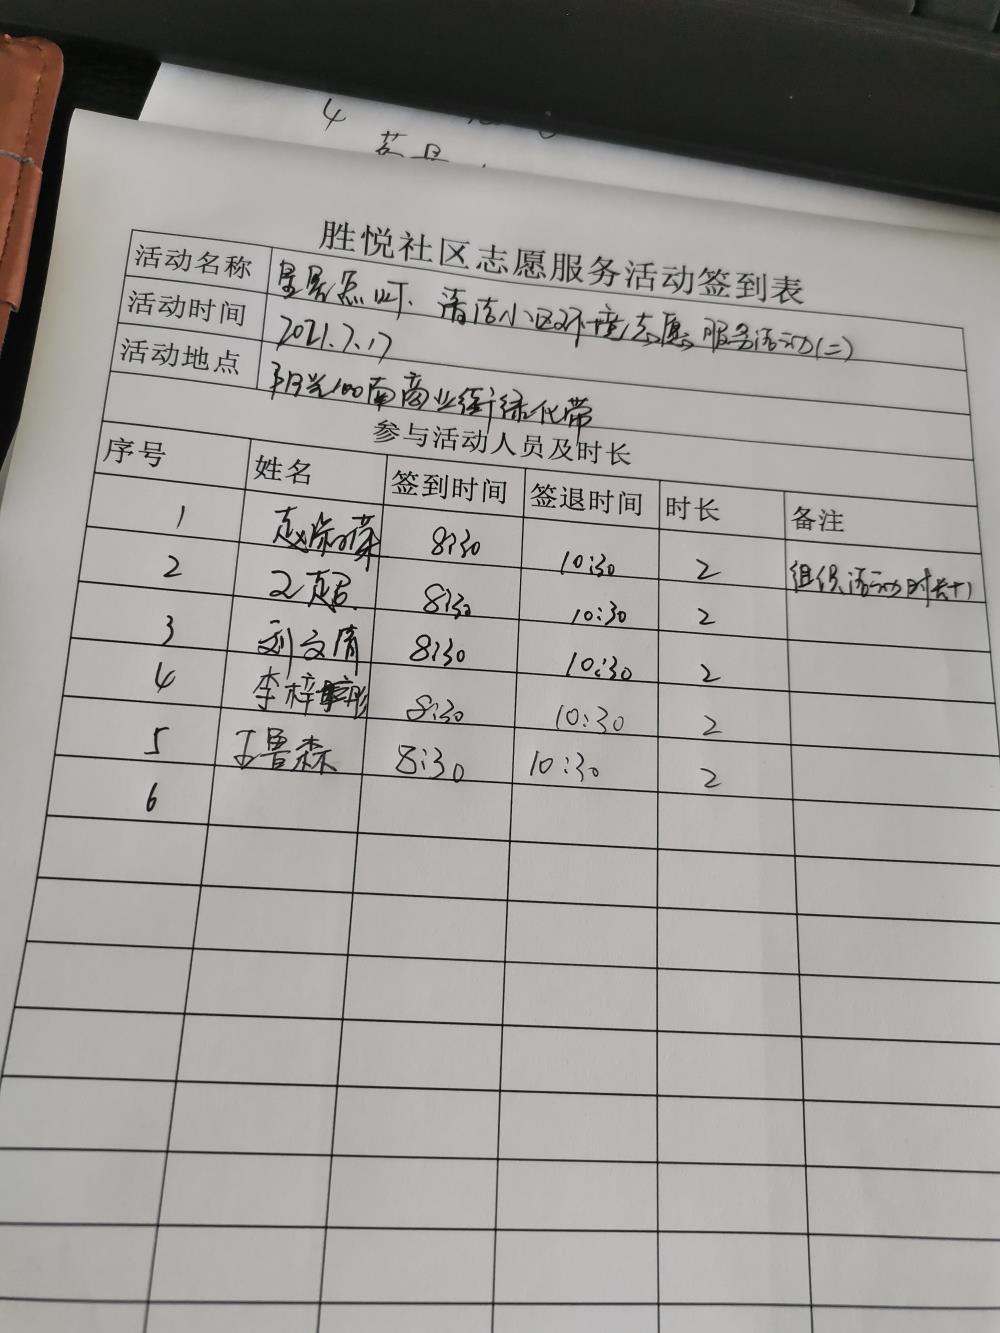 4
胜悦社区志愿服务活动签到表
活动名称 清洁小区环境志愿服务活动(二)
活动时间 2021.7.17
活动地点 阳光100南商业街绿化带
参与活动人员及时长
序号 姓名 签到时间 签退时间 时长 备注
1 赵 荣 8:30 10:30 2 组织活动时长+1
2 超 8:30 10:30 2
3 刘文清 8:30 10:30 2
4 李梓彤 8:30 10:30 2
5 王鲁森 8:30 10:30 2
6